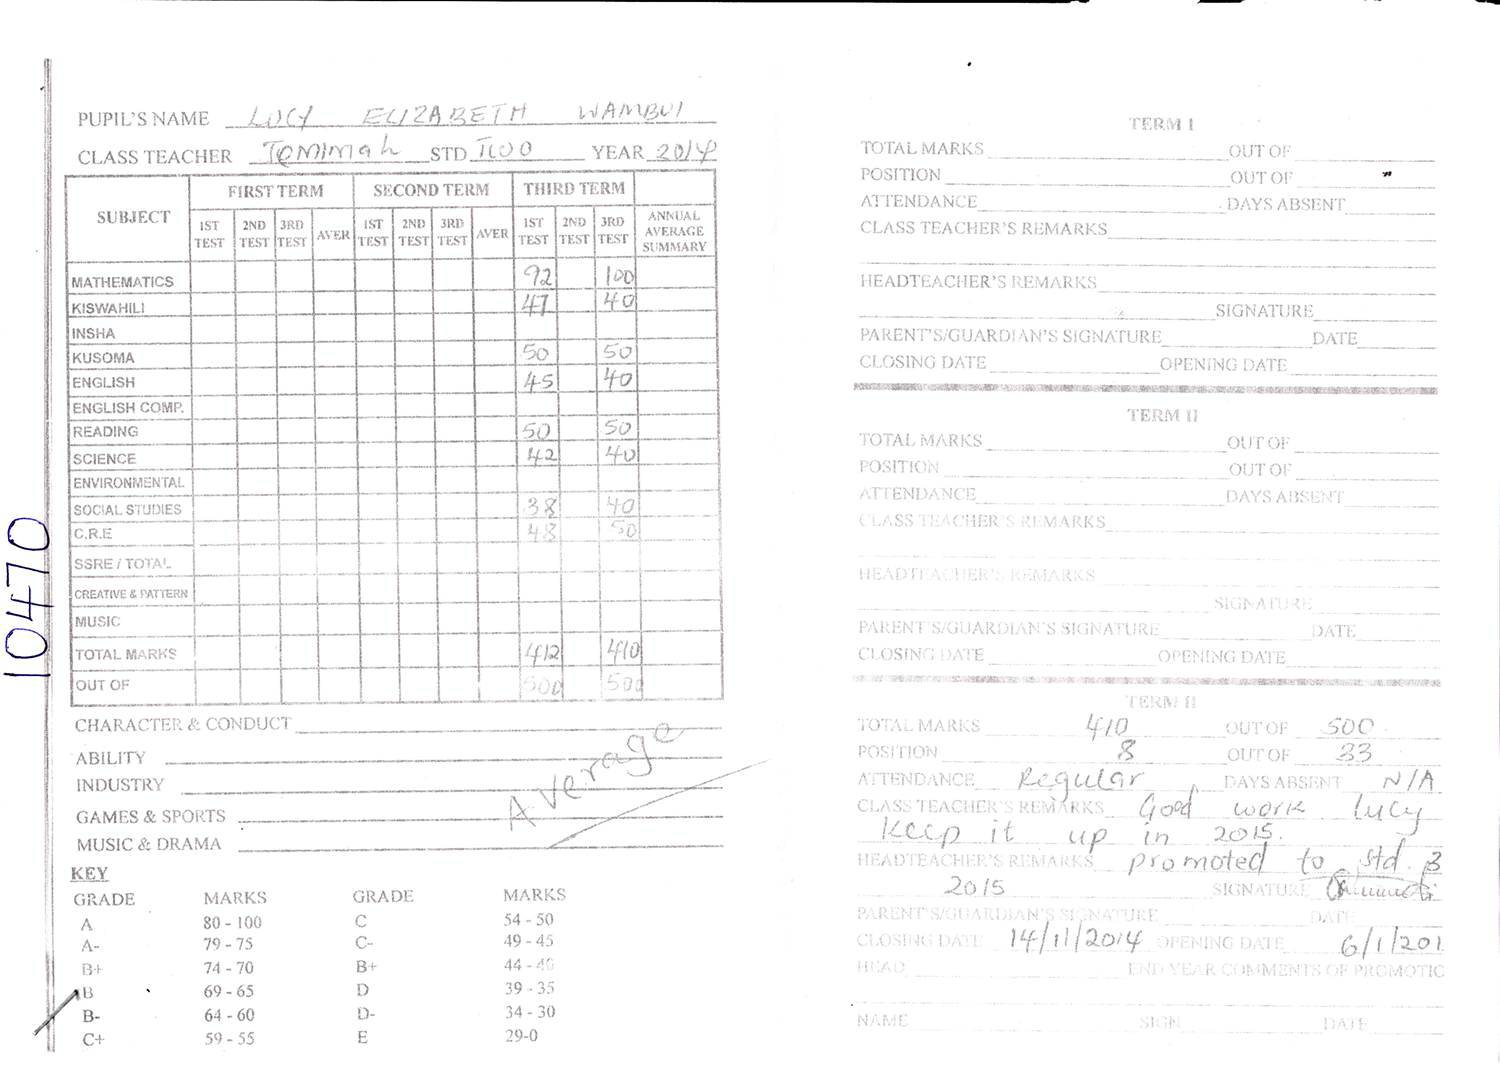 PUPIL'S NAME LUCY ELIZABETH WAMBUI
CLASS TEACHER Jemimah STD TWO YEAR 2014
SUBJECT FIRST TERM SECOND TERM THIRD TERM
1ST TEST 2ND TEST 3RD TEST AVER 1ST TEST 2ND TEST 3RD TEST AVER 1ST TEST 2ND TEST 3RD TEST ANNUAL AVERAGE SUMMARY
MATHEMATICS 92 100
KISWAHILI 47 40
INSHA
KUSOMA 50 50
ENGLISH 45 40
ENGLISH COMP.
READING 50 50
SCIENCE 42 40
ENVIRONMENTAL
SOCIAL STUDIES 38 40
C.R.E 48 50
SSRE / TOTAL
CREATIVE & PATTERN
MUSIC
TOTAL MARKS 412 410
OUT OF 500 500
CHARACTER & CONDUCT
ABILITY
INDUSTRY
GAMES & SPORTS
MUSIC & DRAMA
Average
KEY
GRADE MARKS GRADE MARKS
A 80 - 100 C 54 - 50
A- 79 - 75 C- 49 - 45
B+ 74 - 70 B+ 44 - 40
B 69 - 65 D 39 - 35
B- 64 - 60 D- 34 - 30
C+ 59 - 55 E 29-0
10470
TERM I
TOTAL MARKS OUT OF
POSITION OUT OF
ATTENDANCE DAYS ABSENT
CLASS TEACHER'S REMARKS
HEADTEACHER'S REMARKS
SIGNATURE
PARENT'S/GUARDIAN'S SIGNATURE DATE
CLOSING DATE OPENING DATE
TERM II
TOTAL MARKS OUT OF
POSITION OUT OF
ATTENDANCE DAYS ABSENT
CLASS TEACHER'S REMARKS
HEADTEACHER'S REMARKS
SIGNATURE
PARENT'S/GUARDIAN'S SIGNATURE DATE
CLOSING DATE OPENING DATE
TERM II
TOTAL MARKS 410 OUT OF 500
POSITION 8 OUT OF 33
ATTENDANCE Regular DAYS ABSENT N/A
CLASS TEACHER'S REMARKS Good work lucy
Keep it up in 2015.
HEADTEACHER'S REMARKS promoted to std. 3
2015 SIGNATURE
PARENT'S/GUARDIAN'S SIGNATURE DATE
CLOSING DATE 14/11/2014 OPENING DATE 6/1/201
HEAD END YEAR COMMENTS OF PROMOTIO
NAME SIGN DATE